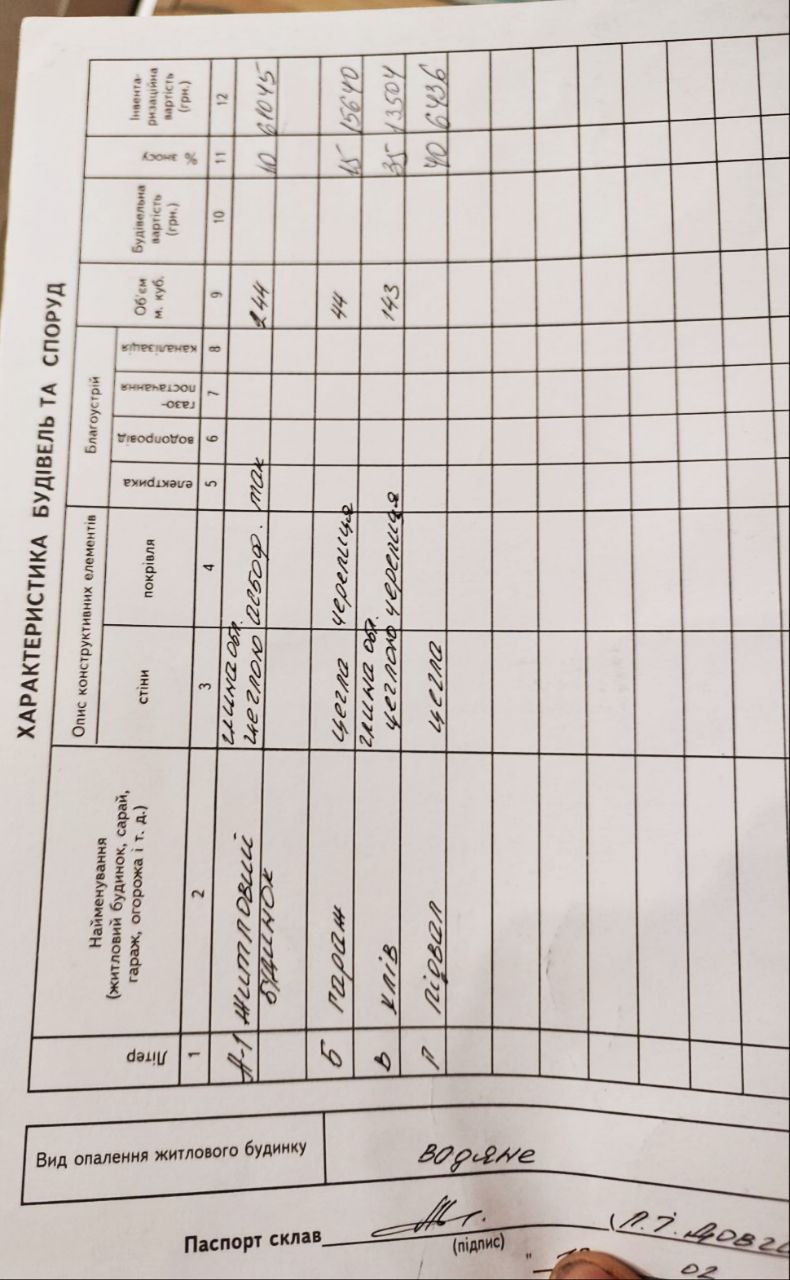 ХАРАКТЕРИСТИКА БУДІВЕЛЬ ТА СПОРУД
Літер
Найменування
(житловий будинок, сарай,
гараж, огорожа і т. д.)
Опис конструктивних елементів
стіни
покрівля
Благоустрій
електрика
водопровід
газо-
постачання
каналізація
Об'єм
м. куб.
Будівельна
вартість
(грн.)
% зносу
Інвента-
ризаційна
вартість
(грн.)
1 2 3 4 5 6 7 8 9 10 11 12
А-1 житловий
будинок
глина обл.
цеглою
азбоф.
так
244
10
61045
Б гараж цегла черепиця 44 15 15640
В хлів
глина обл.
цеглою черепиця 143 35 13504
підвал цегла 40 6436
Вид опалення житлового будинку
водяне
Паспорт склав
(підпис)
02